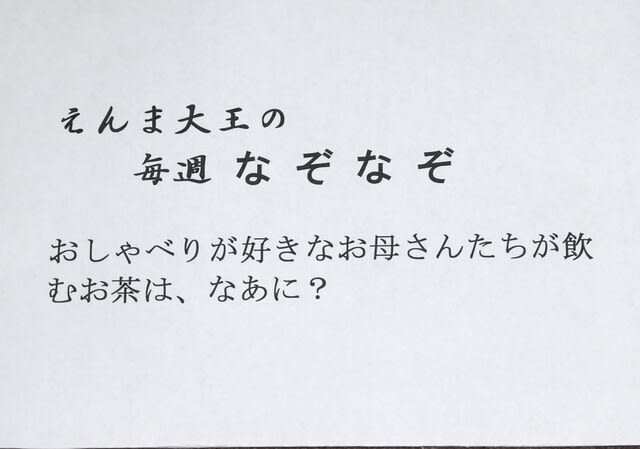 えんま大王の
毎週なぞなぞ
おしゃべりが好きなお母さんたちが飲
むお茶は、なあに？